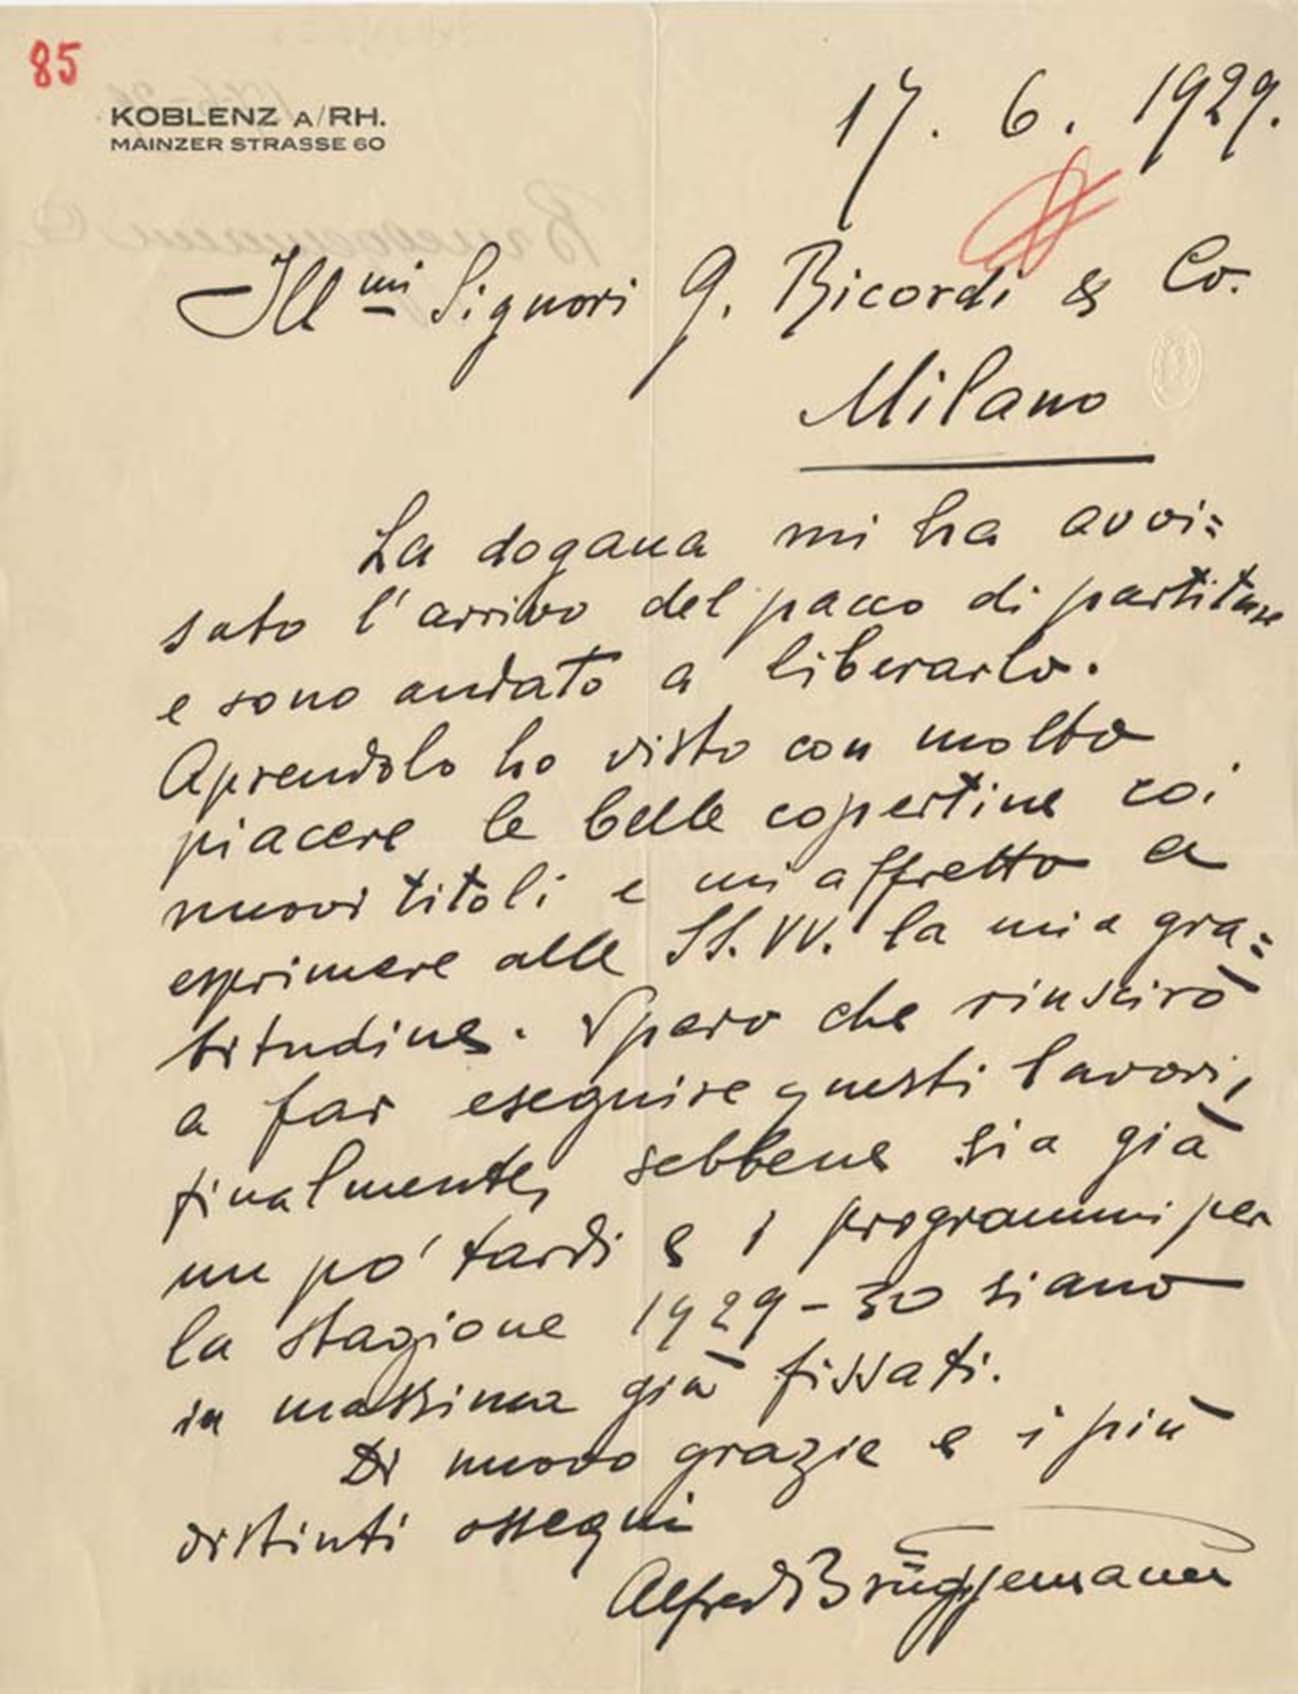 85
KOBLENZ A/RH.
MAINZER STRASSE 60
17. 6. 1929.
Ill.mi Signori G. Ricordi & Co.
Milano
La dogana mi ha avvi=
sato l'arrivo del pacco di partiture
e sono andato a liberarlo.
Aprendolo ho visto con molto
piacere le belle copertine coi
nuovi titoli e mi affretto a
esprimere alle SS. VV. la mia gra=
titudine. Spero che riuscirò
a far eseguire questi lavori,
finalmente, sebbene sia già
un po' tardi e i programmi per
la stagione 1929-30 siano
in massima già fissati.
Di nuovo grazie e i più
distinti ossequi
Alfred Brüggemann